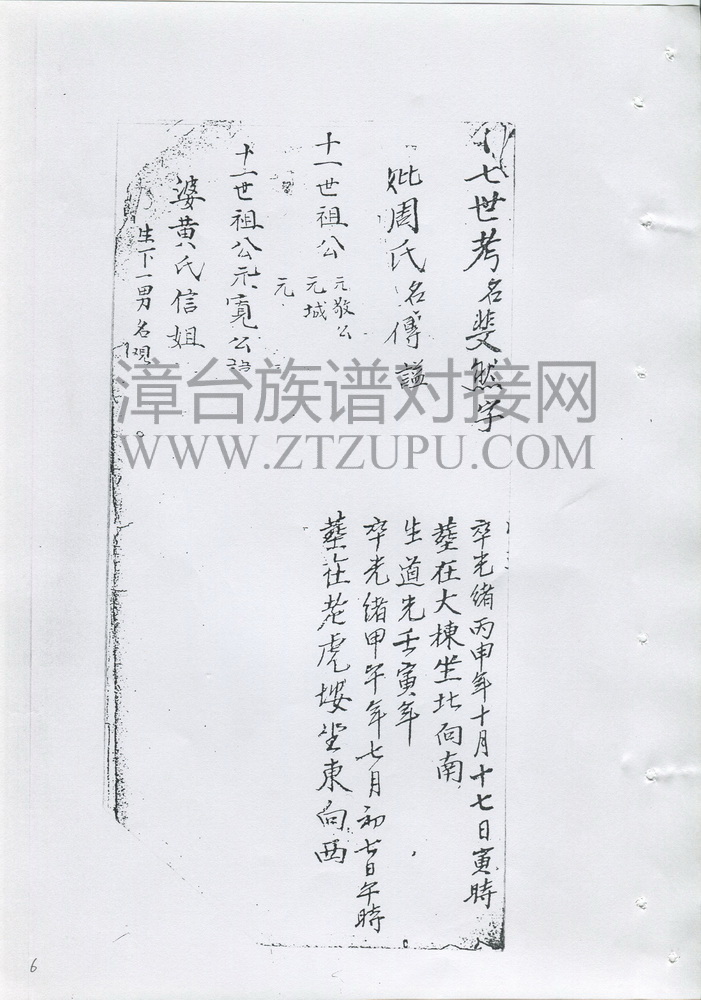 十七世考名斐然字
卒光緒丙申年十月十七日寅時
塟在大棟坐北向南
妣周氏名傳謚
生道光壬寅年
卒光緒甲午年七月初七日午時
塟在老虎墘坐東向西
十一世祖公
元敬公
元城
元
十二世祖公示寬公
婆黄氏信姐
生下一男名現
漳台族谱对接网
WWW.ZTZUPU.COM
6